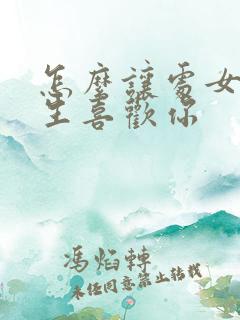 怎麼讓處女
生喜歡你
馮焰轉
未經同意禁止转载